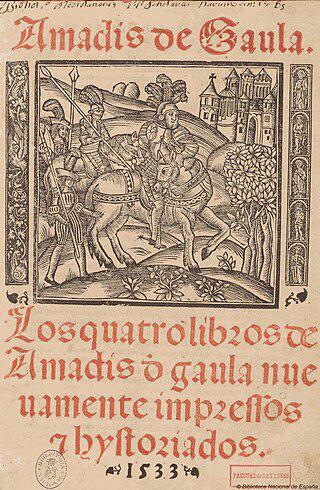 Amadis de Gaula.
Los quatro libros de
Amadis d̄ gaula nue
uamente impressos
⁊ hystoriados.
1533
© Biblioteca Nacional de España